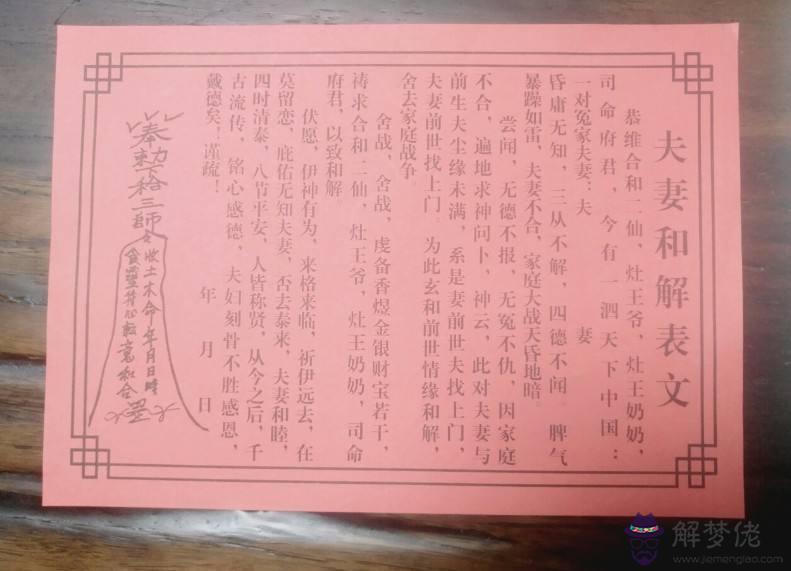 夫妻和解表文
恭维合和二仙，灶王爷，灶王奶奶，
司命府君，今有一泗天下中国：
一对冤家夫妻：夫 妻
昏庸无知，三从不解，四德不闻 脾气
暴躁如雷，夫妻不合，家庭大战天昏地暗。
尝闻，无德不报，无冤不仇，因家庭
不合，遍地求神问卜，神云，此对夫妻与
前生夫尘缘未满，系是妻前世夫找上门，
夫妻前世找上门 为此玄和前世情缘和解，
舍去家庭战争
舍战，舍战，虔备香煜金银财宝若干，
祷求合和二仙，灶王爷，灶王奶奶，司命
府君，以致和解
伏愿，伊神有为，来格来临，祈伊远去，在
莫留恋，庇佑无知夫妻，否去泰来，夫妻和睦，
四时清泰，八节平安，人皆称贤，从今之后，千
古流传，铭心感德，夫妇刻骨不胜感恩，
戴德矣！谨疏！
年 月 日
奉敕 三師
收土木命 年月日時
和合
解梦佬
www.jiemenglao.com